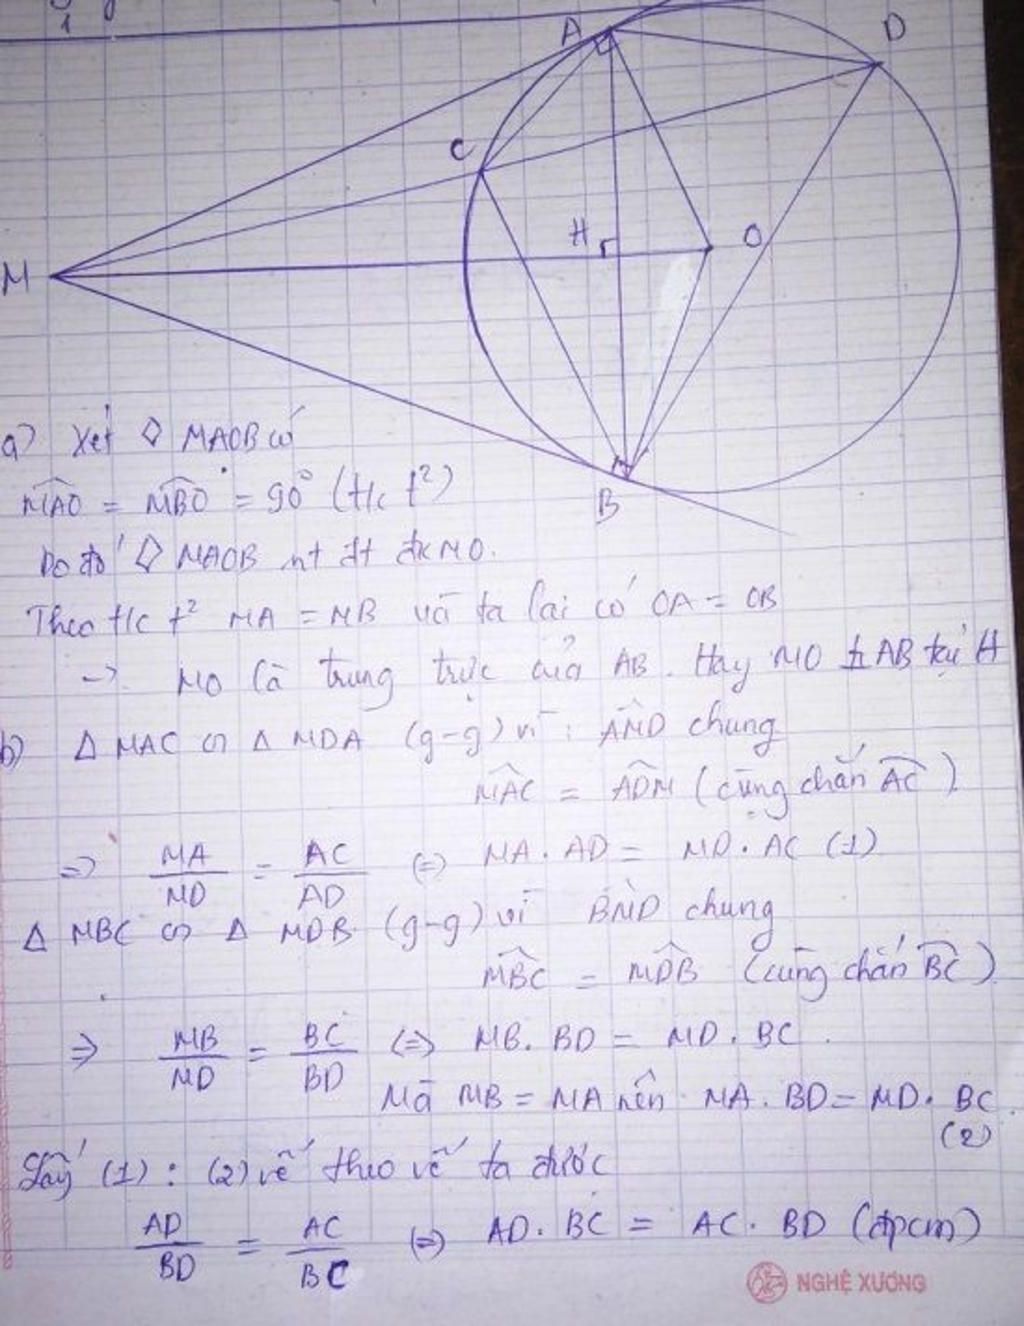 A
D
C
H
O
M
B
a) Xét ◊ MAOB có
MAO = MBO = 90° (t/c t²)
Do đó ◊ MAOB nt đt đk MO.
Theo t/c t² MA = MB và ta lại có OA = OB
→ MO là trung trực của AB. Hay MO ⊥ AB tại H
b) Δ MAC ∽ Δ MDA (g-g) vì: AMD chung
MAC = ADM (cùng chắn AC).
=> MA/MD = AC/AD <=> MA . AD = MD . AC (1)
Δ MBC ∽ Δ MDB (g-g) vì BMD chung
MBC = MDB (cùng chắn BC).
=> MB/MD = BC/BD <=> MB . BD = MD . BC .
Mà MB = MA nên MA . BD = MD . BC .
(2)
Lấy (1) : (2) vế theo vế ta được
AD/BD = AC/BC <=> AD . BC = AC . BD (đpcm)
NGHỆ XƯƠNG